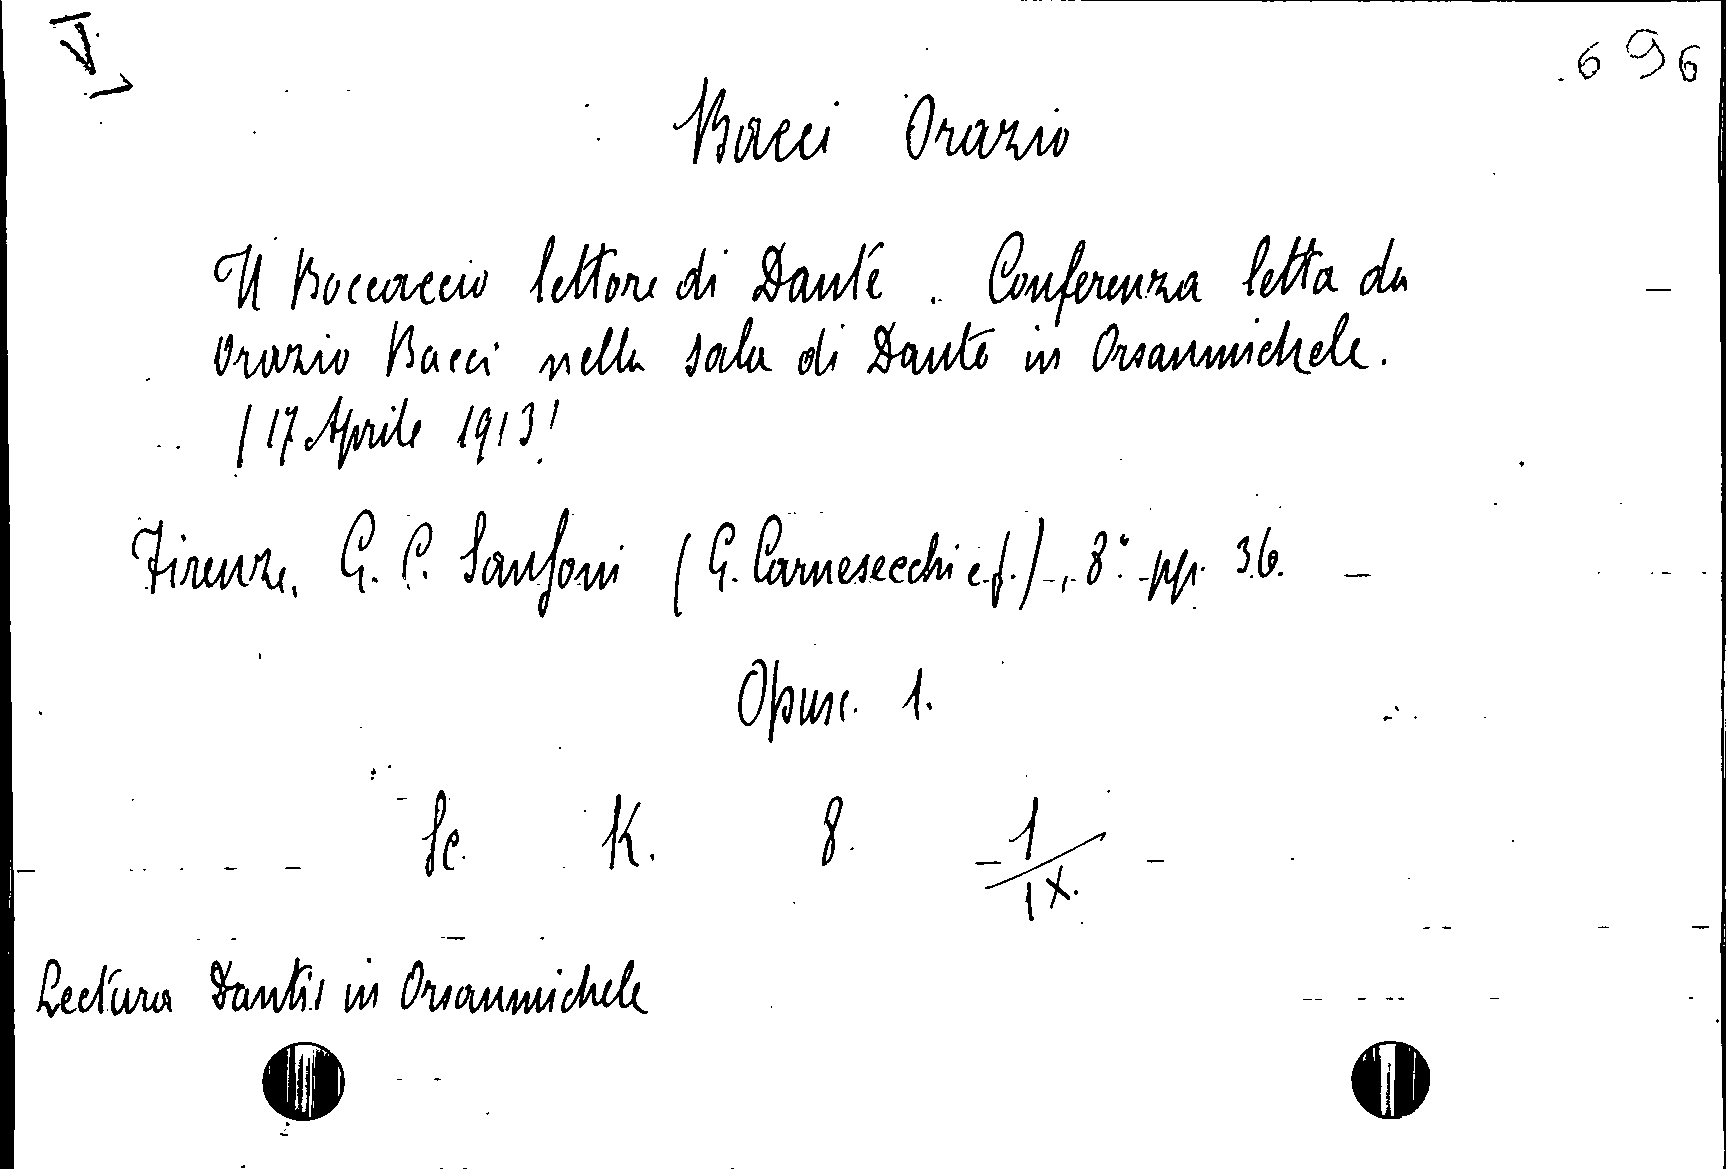 696
Bacci Orazio
Il Boccaccio lettore di Dante. Conferenza letta da
Orazio Bacci nella sala di Dante in Orsanmichele.
(17 Aprile 1913)
Firenze, G. C. Sansoni (G. Carnesecchi e f.), 8° pp. 36.
Opusc. 1.
Sc. K. 8. 1/IX.
Lectura Dantis in Orsanmichele